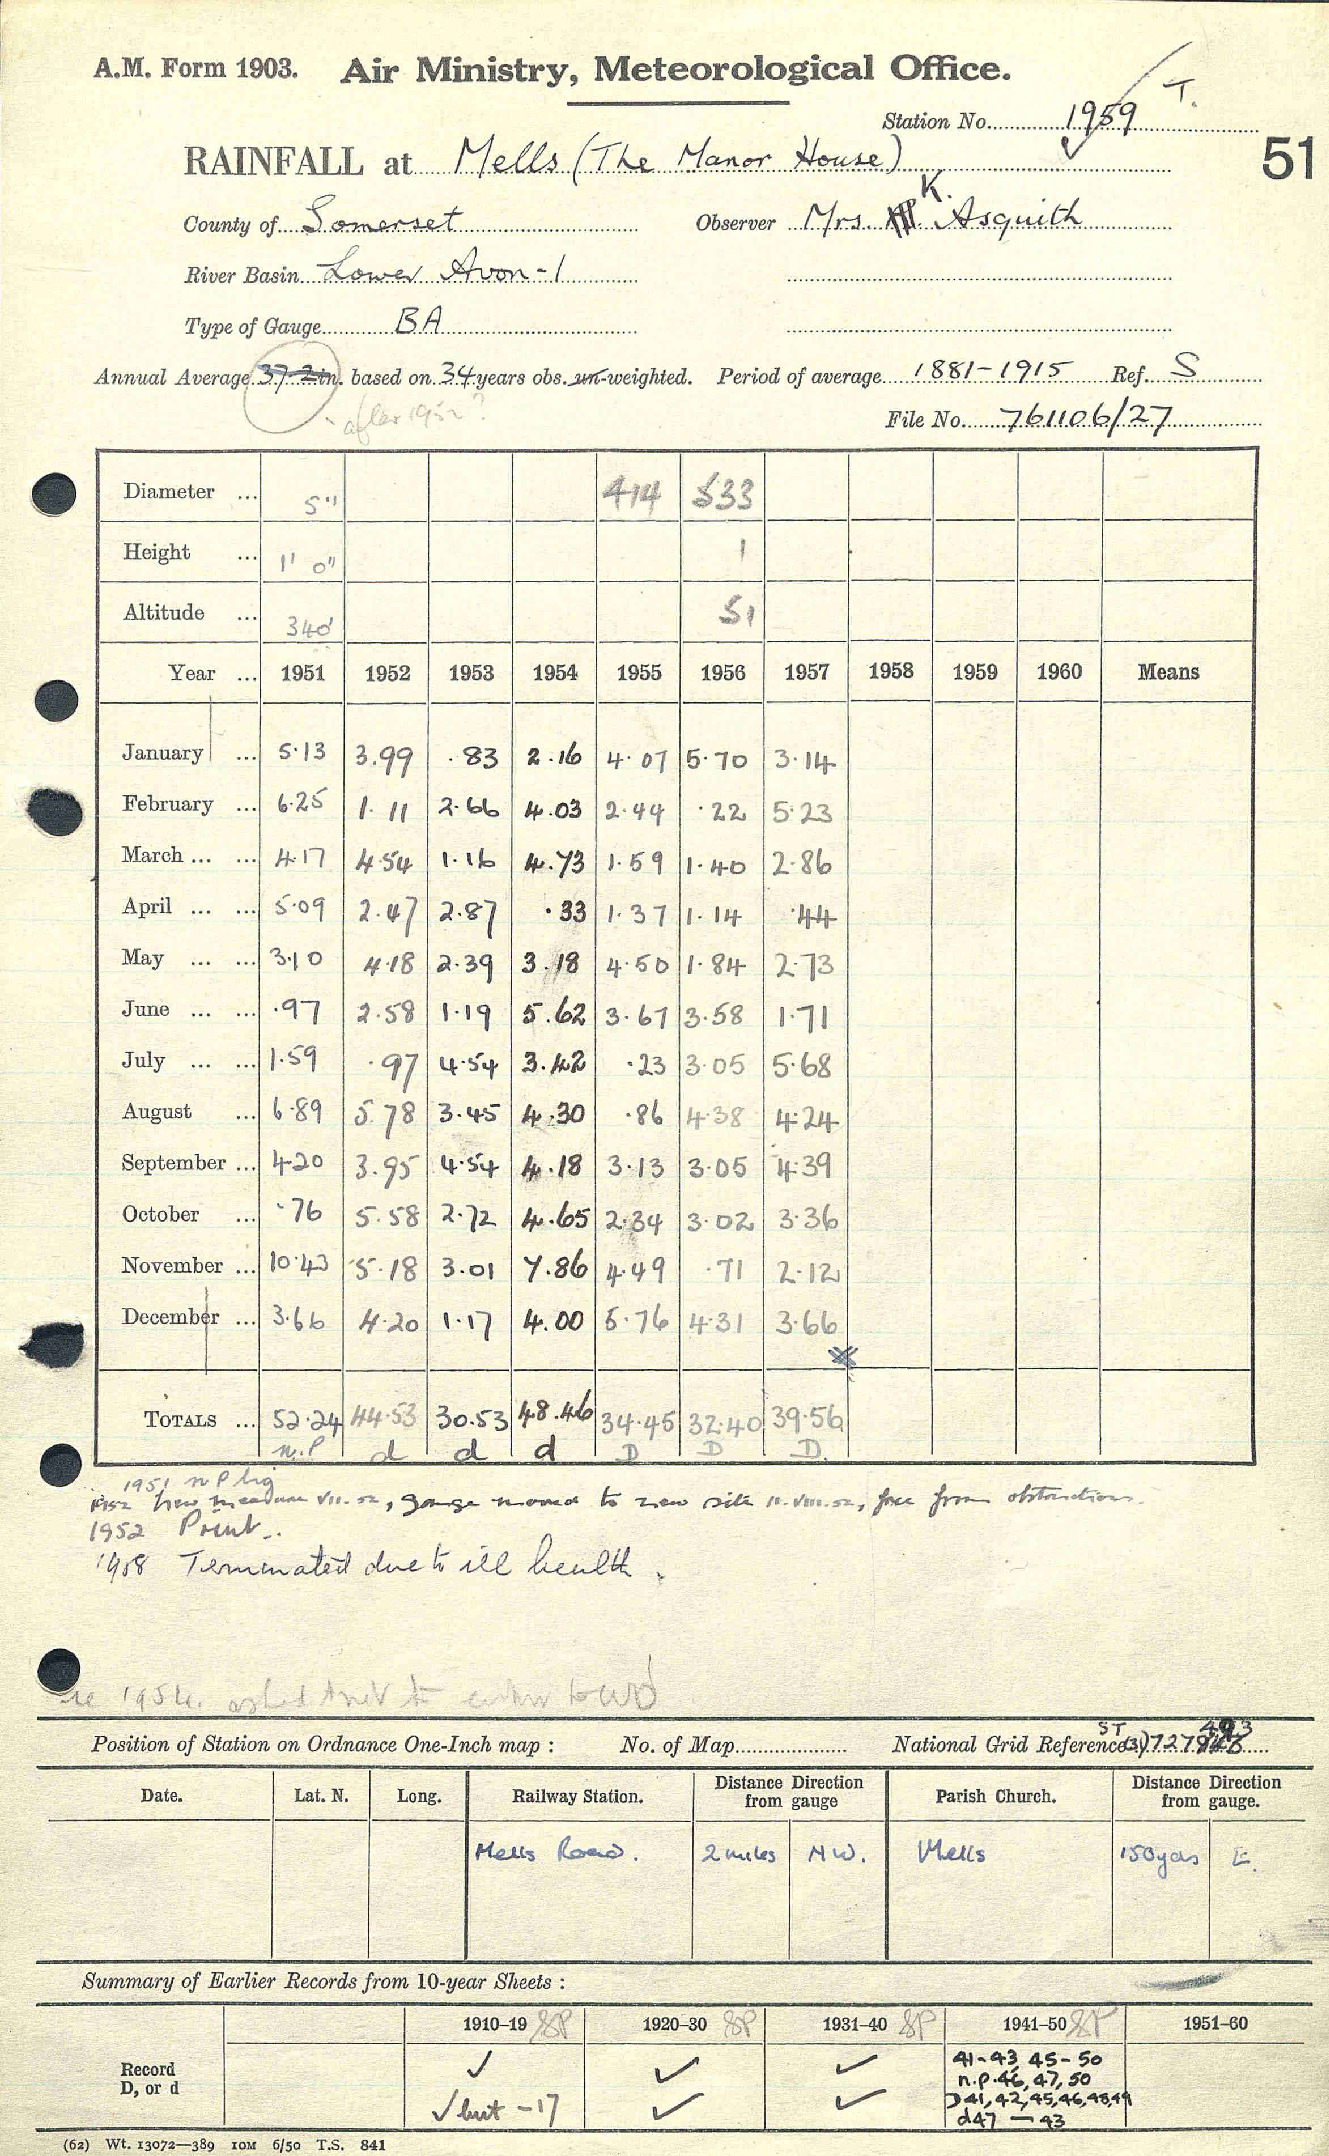 A.M. Form 1903. Air Ministry, Meteorological Office.
Station No. 1959 T.
51
RAINFALL at Mells (The Manor House)
County of Somerset Observer Mrs. K. Asquith
River Basin Lower Avon-1
Type of Gauge BA
Annual Average 37.2 in. based on 34 years obs. un-weighted. Period of average 1881-1915 Ref. S
after 1952?
File No. 761106/27
Diameter ... 5" 414 533
Height ... 1' 0" 1
Altitude ... 340' 51
Year ... 1951 1952 1953 1954 1955 1956 1957 1958 1959 1960 Means
January ... 5.13 3.99 .83 2.16 4.07 5.70 3.14
February ... 6.25 1.11 2.66 4.03 2.44 .22 5.23
March ... ... 4.17 4.54 1.16 4.73 1.59 1.40 2.86
April ... ... 5.09 2.47 2.87 .33 1.37 1.14 .44
May ... ... 3.10 4.18 2.39 3.18 4.50 1.84 2.73
June ... ... .97 2.58 1.19 5.62 3.67 3.58 1.71
July ... ... 1.59 .97 4.54 3.42 .23 3.05 5.68
August ... 6.89 5.78 3.45 4.30 .86 4.38 4.24
September ... 4.20 3.95 4.54 4.18 3.13 3.05 4.39
October ... .76 5.58 2.72 4.65 2.34 3.02 3.36
November ... 10.43 5.18 3.01 7.86 4.49 .71 2.12
December ... 3.66 4.20 1.17 4.00 5.76 4.31 3.66
TOTALS ... 52.24 44.53 30.53 48.46 34.45 32.40 39.56
n.P d d d D D D.
1951 n P
1952 New measure VII.52, gauge moved to new site 11.VIII.52, free from obstructions.
1952 Print.
1958 Terminated due to ill health.
1954. asked to
Position of Station on Ordnance One-Inch map : No. of Map National Grid Reference ST (31) 727 493
Date. Lat. N. Long. Railway Station. Distance from gauge Direction Parish Church. Distance from gauge. Direction
Mells Road. 2 miles NW. Mells 150 yds E.
Summary of Earlier Records from 10-year Sheets :
1910–19 SP 1920–30 SP 1931–40 SP 1941–50 SP 1951–60
Record D, or d
✓ ✓ ✓ 41-43, 45-50
n.p. 46, 47, 50
✓ but -17 ✓ ✓ D 41, 42, 45, 46, 48, 49
d 47 — 43
(62) Wt. 13072—389 10M 6/50 T.S. 841